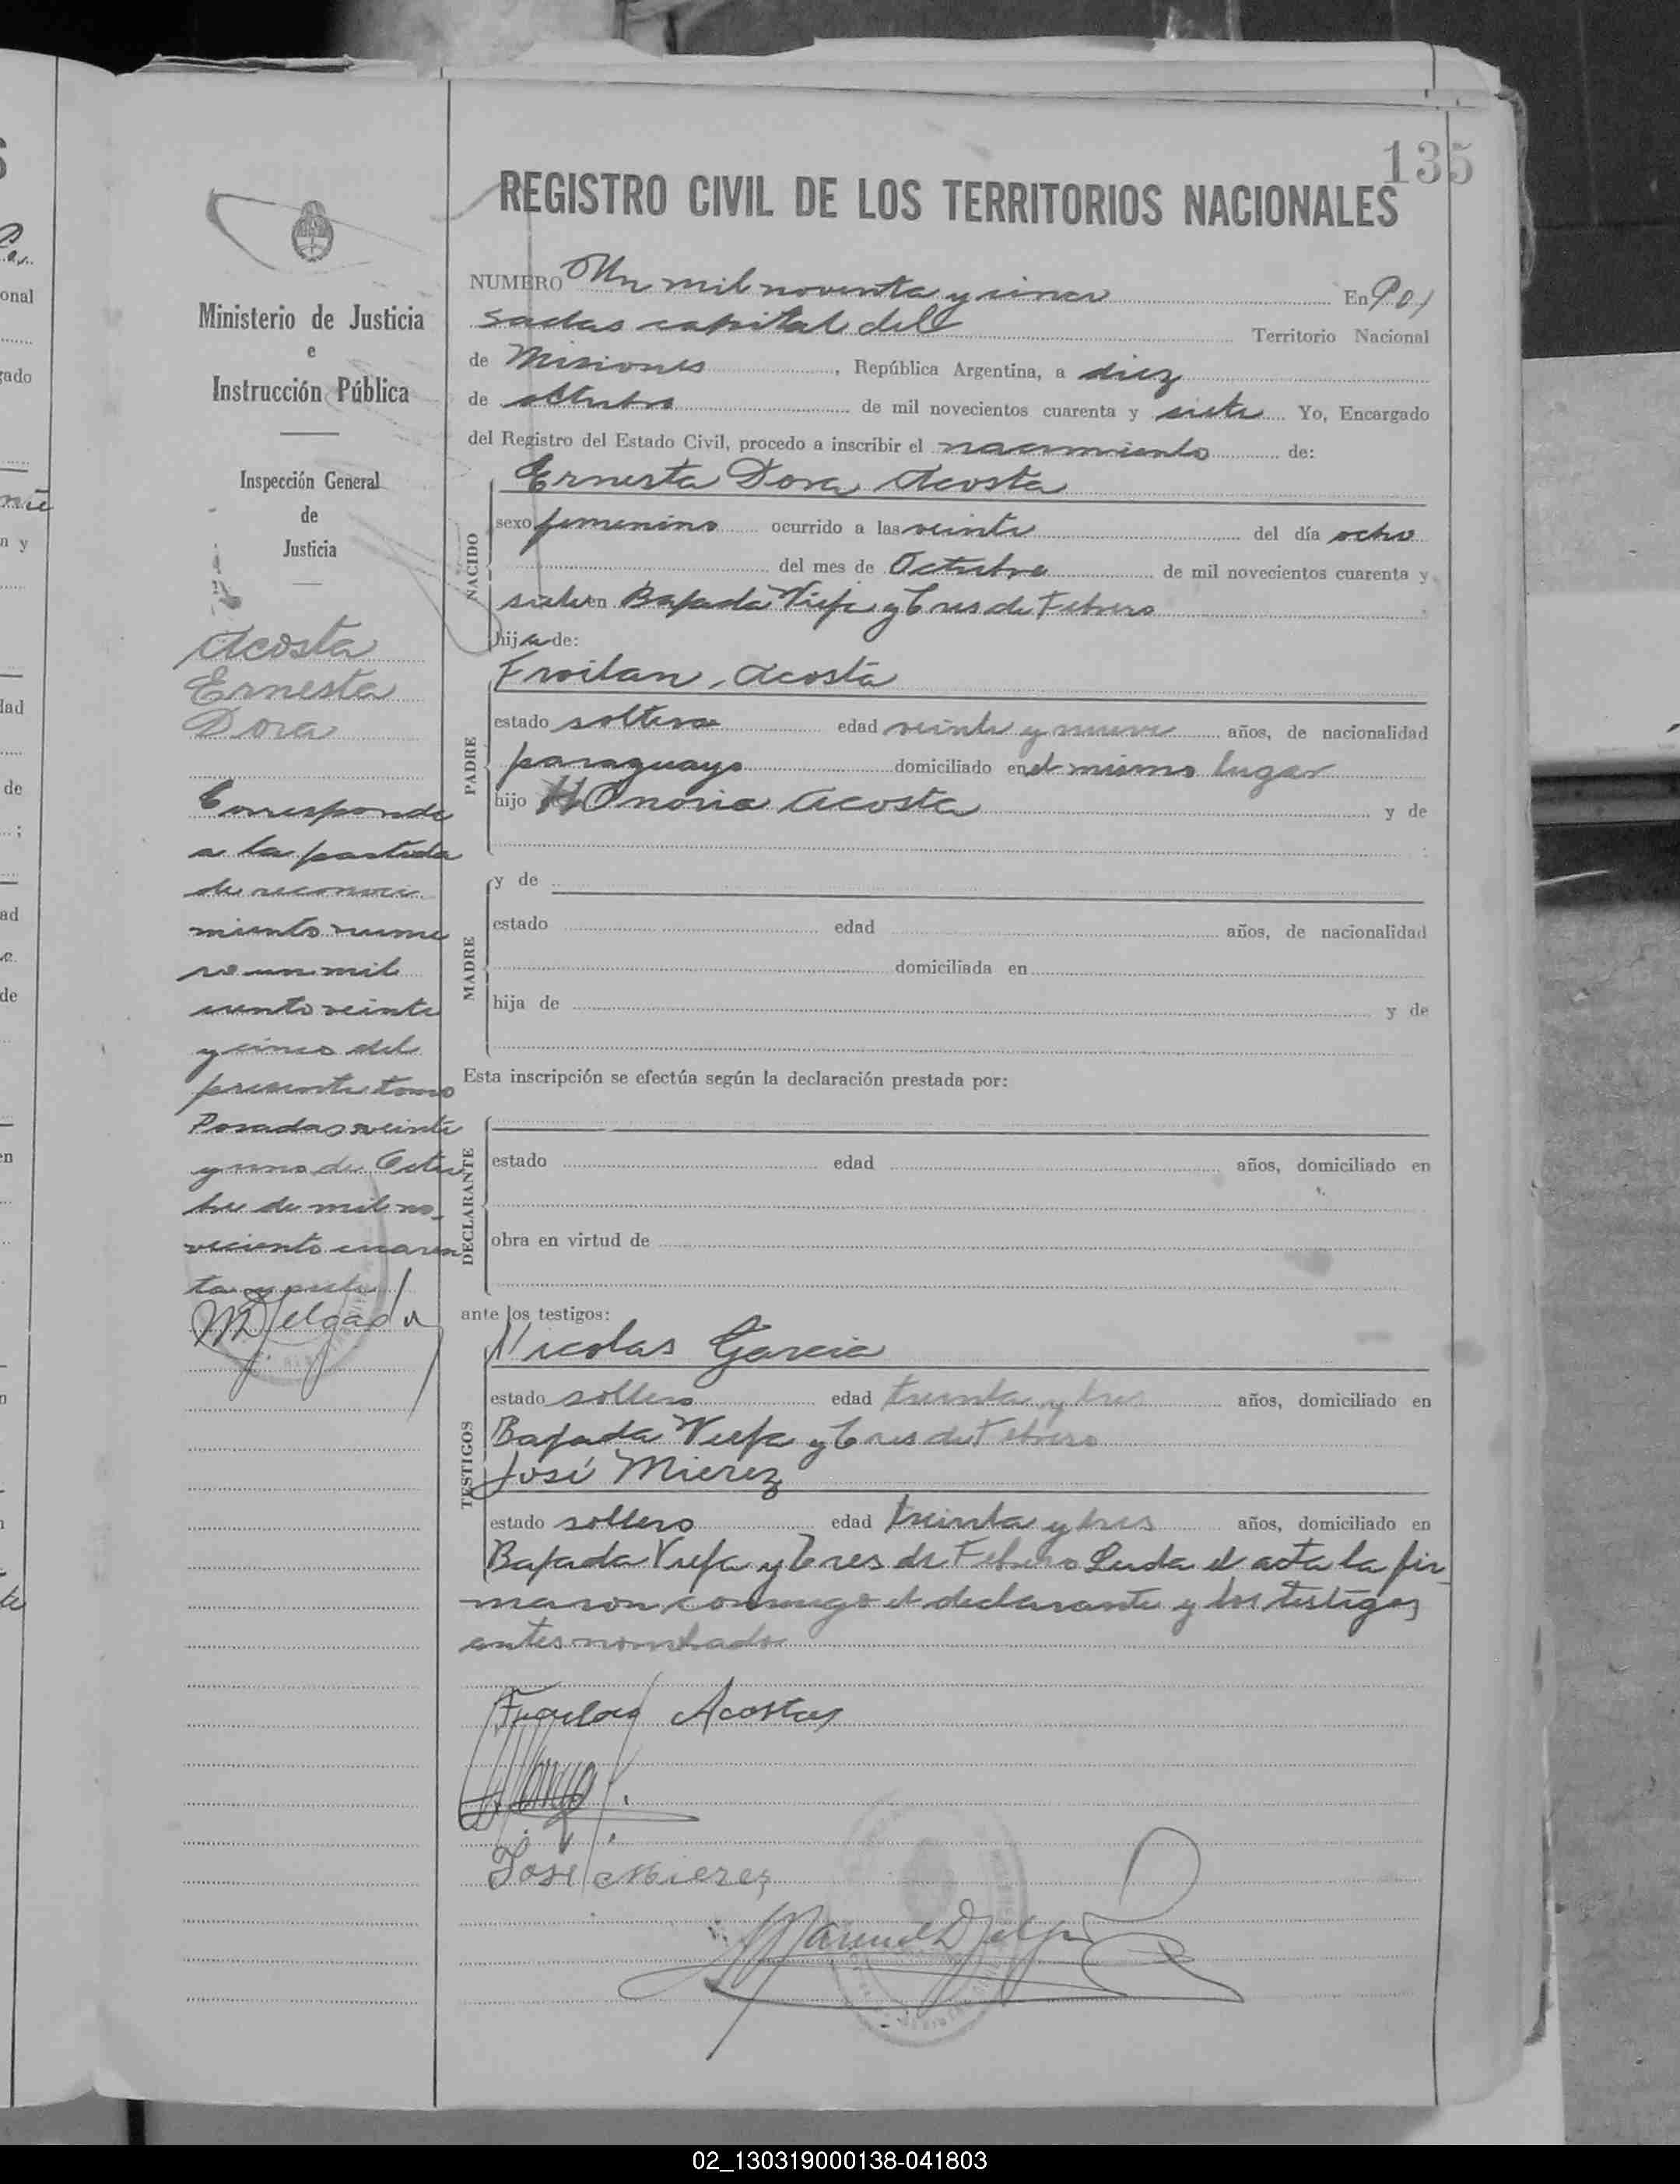 135
REGISTRO CIVIL DE LOS TERRITORIOS NACIONALES
Ministerio de Justicia
e
Instrucción Pública
Inspección General
de
Justicia
Acosta
Ernesta
Dora
Corresponde
a la partida
de reconoci
miento nume
ro un mil
ciento veinte
y cinco del
presente tomo
Posadas veinte
y uno de Octu
bre de mil no_
veciento cuaren
ta y siete
M Delgado
NUMERO Un mil noventa y cinco En Po/
sadas capital del Territorio Nacional
de Misiones, República Argentina, a diez
de octubre de mil novecientos cuarenta y siete Yo, Encargado
del Registro del Estado Civil, procedo a inscribir el nacimiento de:
NACIDO
Ernesta Dora Acosta
sexo femenino ocurrido a las veinte del día ocho
del mes de Octubre de mil novecientos cuarenta y
siete en Bajada Vieja y Tres de Febrero
hija de:
PADRE
Froilan, Acosta
estado soltero edad veinte y nueve años, de nacionalidad
paraguayo domiciliado en el mismo lugar
hijo HOnoria Acosta y de
MADRE
y de
estado edad años, de nacionalidad
domiciliada en
hija de y de
Esta inscripción se efectúa según la declaración prestada por:
DECLARANTE
estado edad años, domiciliado en
obra en virtud de
ante los testigos:
TESTIGOS
Nicolas Garcia
estado soltero edad treinta y tres años, domiciliado en
Bajada Vieja y Tres de Febrero
José Mierez
estado soltero edad treinta y tres años, domiciliado en
Bajada Vieja y Tres de Febrero Leida el acta la fir_
maron conmigo el declarante y los testigos
antes nombrados
Froilan Acosta
José Mierez
Manuel Delgado
02_130319000138-041803